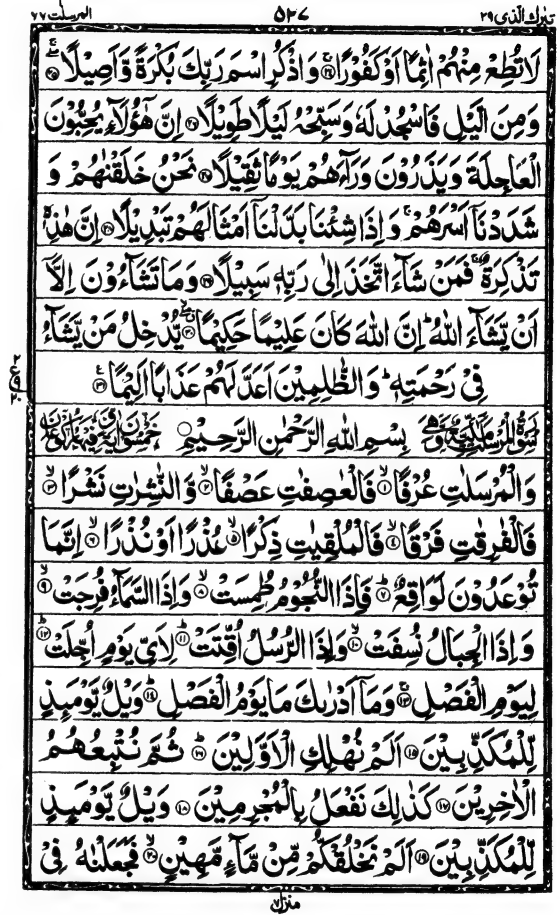 تبٰرك الذی ۲۹ ۵۲۷ المرسلٰت ۷۷
لَا تُطِعْ مِنْهُمْ اٰثِمًا اَوْ كَفُوْرًا ۚ﴿۲۴﴾ وَاذْكُرِ اسْمَ رَبِّكَ بُكْرَةً وَّاَصِيْلًا ۖۚ﴿۲۵﴾
وَمِنَ الَّيْلِ فَاسْجُدْ لَهٗ وَسَبِّحْهُ لَيْلًا طَوِيْلًا ﴿۲۶﴾ اِنَّ هٰٓؤُلَآءِ يُحِبُّوْنَ
الْعَاجِلَةَ وَيَذَرُوْنَ وَرَآءَهُمْ يَوْمًا ثَقِيْلًا ﴿۲۷﴾ نَحْنُ خَلَقْنٰهُمْ وَ
شَدَدْنَاۤ اَسْرَهُمْ ۚ وَاِذَا شِئْنَا بَدَّلْنَاۤ اَمْثَالَهُمْ تَبْدِيْلًا ﴿۲۸﴾ اِنَّ هٰذِهٖ
تَذْكِرَةٌ ۚ فَمَنْ شَآءَ اتَّخَذَ اِلٰى رَبِّهٖ سَبِيْلًا ﴿۲۹﴾ وَمَا تَشَآءُوْنَ اِلَّاۤ
اَنْ يَّشَآءَ اللّٰهُ ؕ اِنَّ اللّٰهَ كَانَ عَلِيْمًا حَكِيْمًا ۖ﴿۳۰﴾ يُّدْخِلُ مَنْ يَّشَآءُ
فِىْ رَحْمَتِهٖ ؕ وَالظّٰلِمِيْنَ اَعَدَّ لَهُمْ عَذَابًا اَلِيْمًا ﴿۳۱﴾
بِسْمِ اللّٰهِ الرَّحْمٰنِ الرَّحِيْمِ
وَالْمُرْسَلٰتِ عُرْفًا ۙ﴿۱﴾ فَالْعٰصِفٰتِ عَصْفًا ۙ﴿۲﴾ وَّالنّٰشِرٰتِ نَشْرًا ۙ﴿۳﴾
فَالْفٰرِقٰتِ فَرْقًا ۙ﴿۴﴾ فَالْمُلْقِيٰتِ ذِكْرًا ۙ﴿۵﴾ عُذْرًا اَوْ نُذْرًا ۙ﴿۶﴾ اِنَّمَا
تُوْعَدُوْنَ لَوَاقِعٌ ؕ﴿۷﴾ فَاِذَا النُّجُوْمُ طُمِسَتْ ۙ﴿۸﴾ وَاِذَا السَّمَآءُ فُرِجَتْ ۙ﴿۹﴾
وَاِذَا الْجِبَالُ نُسِفَتْ ۙ﴿۱۰﴾ وَاِذَا الرُّسُلُ اُقِّتَتْ ؕ﴿۱۱﴾ لِاَىِّ يَوْمٍ اُجِّلَتْ ؕ﴿۱۲﴾
لِيَوْمِ الْفَصْلِ ۚ﴿۱۳﴾ وَمَاۤ اَدْرٰىكَ مَا يَوْمُ الْفَصْلِ ؕ﴿۱۴﴾ وَيْلٌ يَّوْمَئِذٍ
لِّلْمُكَذِّبِيْنَ ﴿۱۵﴾ اَلَمْ نُهْلِكِ الْاَوَّلِيْنَ ؕ﴿۱۶﴾ ثُمَّ نُتْبِعُهُمُ
الْاٰخِرِيْنَ ﴿۱۷﴾ كَذٰلِكَ نَفْعَلُ بِالْمُجْرِمِيْنَ ﴿۱۸﴾ وَيْلٌ يَّوْمَئِذٍ
لِّلْمُكَذِّبِيْنَ ﴿۱۹﴾ اَلَمْ نَخْلُقْكُّمْ مِّنْ مَّآءٍ مَّهِيْنٍ ۙ﴿۲۰﴾ فَجَعَلْنٰهُ فِىْ
منزل ۷